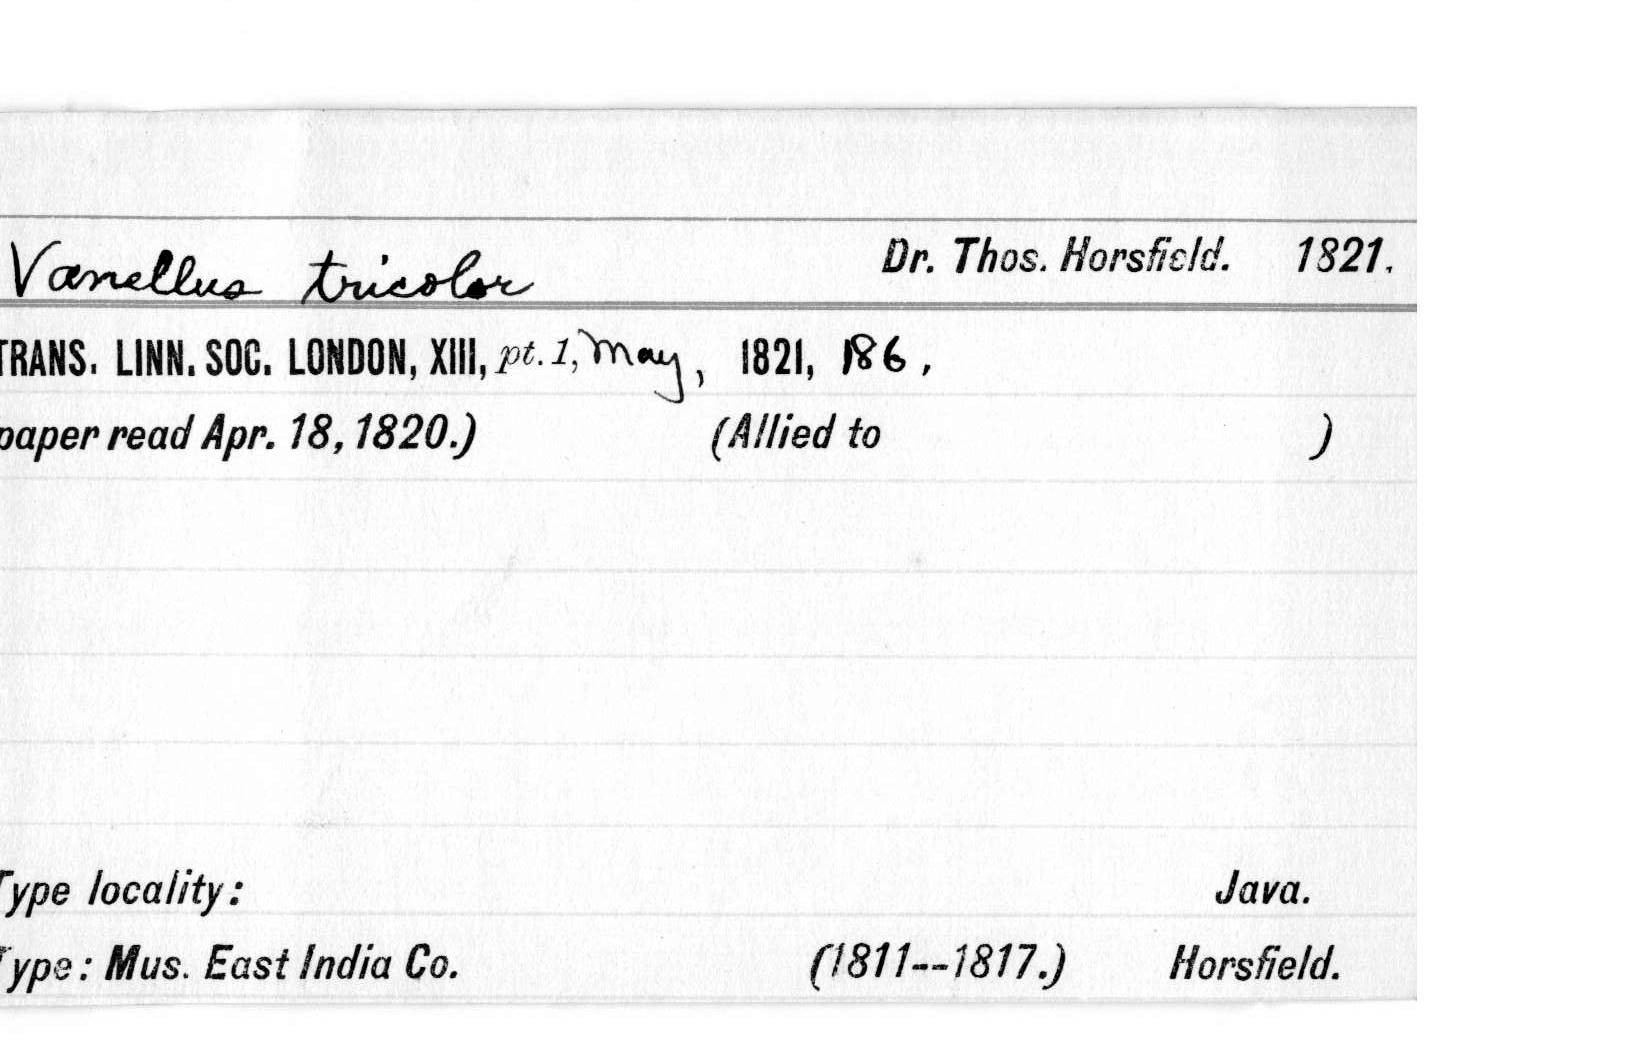 Vanellus tricolor Dr. Thos. Horsfield. 1821.
TRANS. LINN. SOC. LONDON, XIII, pt. 1, May, 1821, 186.
paper read Apr. 18, 1820.) (Allied to )
Type locality: Java.
Type: Mus. East India Co. (1811--1817.) Horsfield.